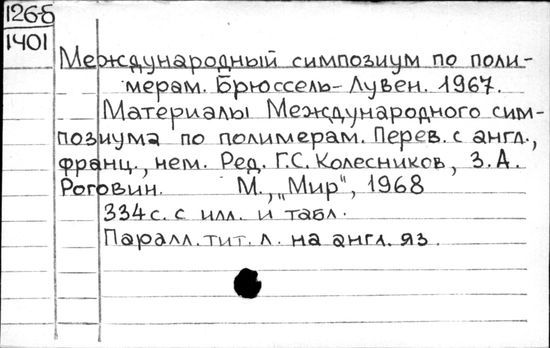 126-б
1401
Международный симпозиум по поли-
мерам. Брюссель-Лувен. 1967.
Материалы Международного сим-
позиума по полимерам. Перев. с англ.,
франц., нем. Ред. Г.С. Колесников, З.А.
Роговин. М., „Мир", 1968
334 с. с илл. и табл.
Паралл. тит. л. на англ. яз.